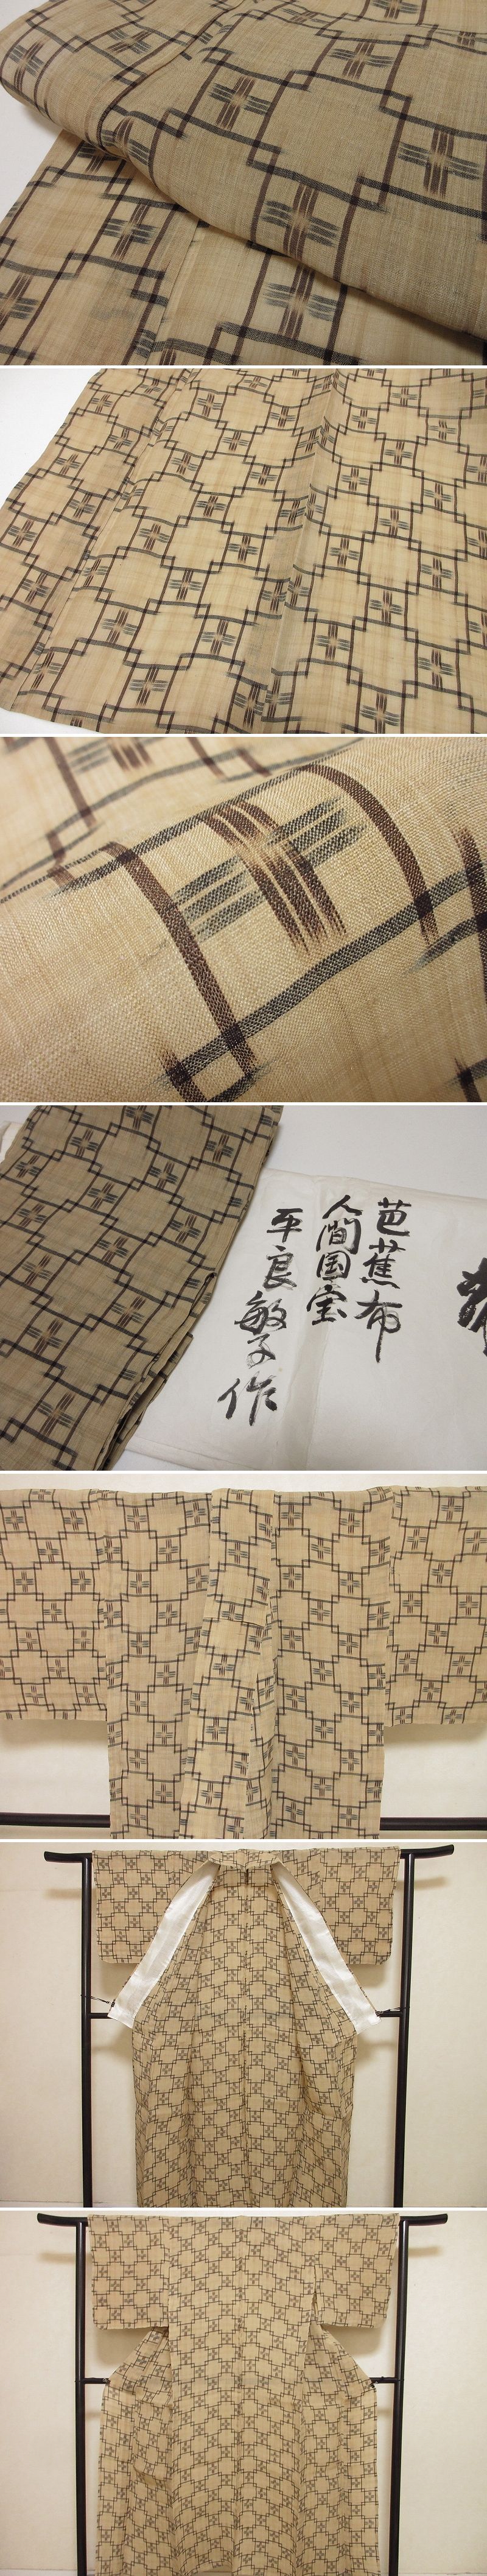 芭蕉布
人間国宝
平良敏子作